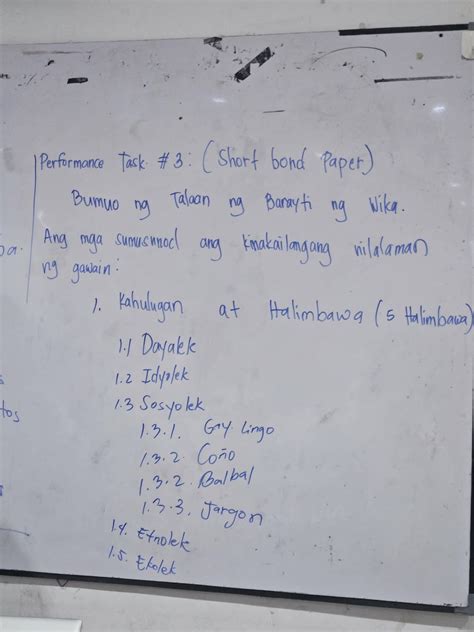 Performance Task #3: (Short bond Paper)
Bumuo ng Talaan ng Barayti ng Wika.
Ang mga sumusunod ang kinakailangang nilalaman
ng gawain:
1. Kahulugan at Halimbawa (5 Halimbawa)
1.1 Dayalek
1.2 Idyolek
1.3 Sosyolek
1.3.1. Gay Lingo
1.3.2. Coño
1.3.2. Balbal
1.3.3. Jargon
1.4. Etnolek
1.5. Ekolek
tos